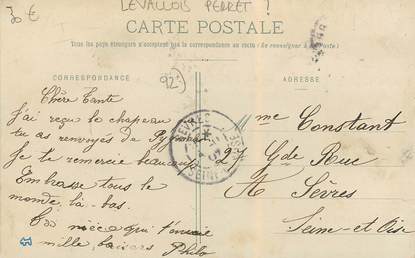 30€
LEVALLOIS PERRET !
CARTE POSTALE
Tous les pays étrangers n'acceptent pas la correspondance au recto (Se renseigner à la Poste)
92)
CORRESPONDANCE
ADRESSE
Chère Tante
j'ai reçu le chapeau
tu as renvoyés de
Je te remercie beaucoup
Embrasse tous le
monde là-bas.
Ta nièce qui t'envoie
mille baisers Philo
SEVRES
SEINE
Mme Constant
27 Gde Rue
A Sèvres
Seine-et-Oise